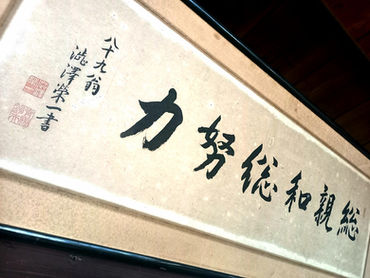 総親和総努力
八十九翁
澁澤榮一書